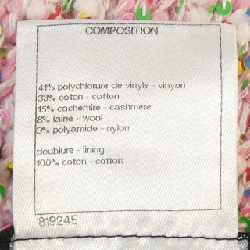 COMPOSITION
41% polychlorure de vinyle - vinyon
33% coton - cotton
15% cachemire - cashmere
8% laine - wool
3% polyamide - nylon
doublure - lining
100% coton - cotton
819245